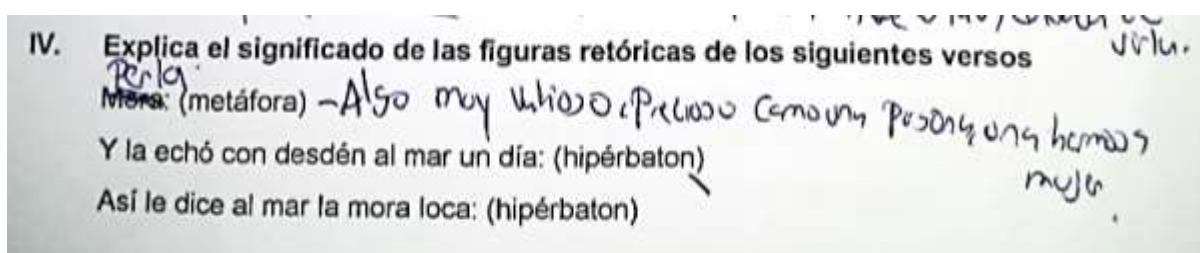 IV. Explica el significado de las figuras retóricas de los siguientes versos
Perla
Mora: (metáfora) – Algo muy valioso, precioso como una persona, una hermosa
mujer.
Y la echó con desdén al mar un día: (hipérbaton)
Así le dice al mar la mora loca: (hipérbaton)